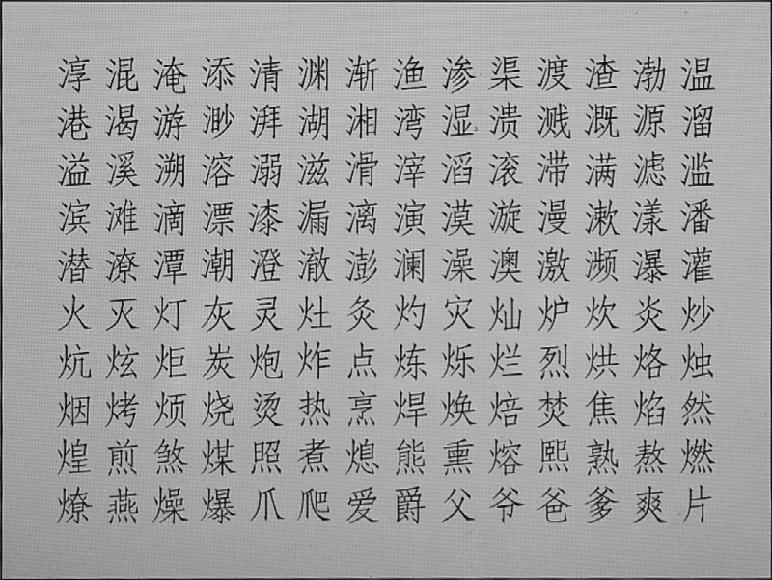 淳混淹添清渊渐渔渗渠渡渣渤温
港渴游渺湃湖湘湾湿溃溅溉源溜
溢溪溯溶溺滋滑滓滔滚滞满滤滥
滨滩滴漂漆漏漓演漠漩漫漱漾潘
潜潦潭潮澄澈澎澜澡澳激濒瀑灌
火灭灯灰灵灶灸灼灾灿炉炊炎炒
炕炫炬炭炮炸点炼烁烂烈烘烙烛
烟烤烦烧烫热烹焊焕焙焚焦焰然
煌煎煞煤照煮熄熊熏熔熙熟熬燃
燎燕燥爆爪爬爱爵父爷爸爹爽片